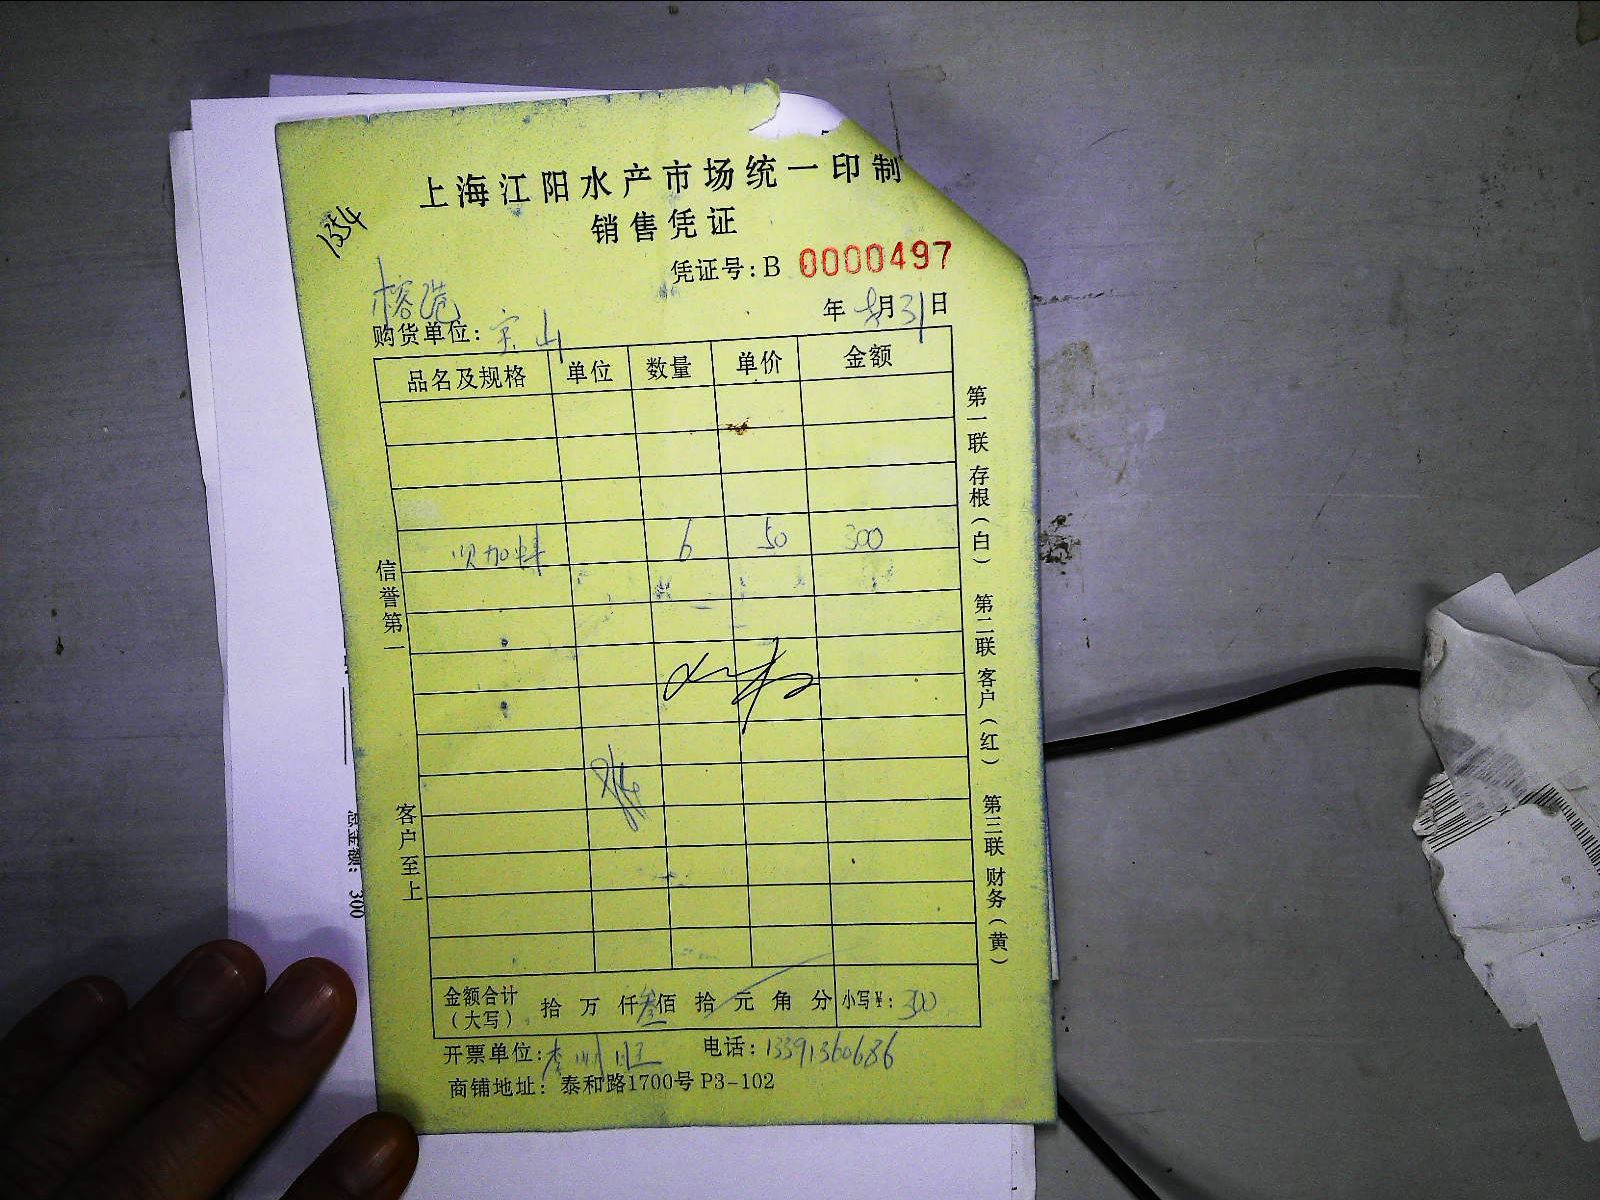 上海江阳水产市场统一印制
销售凭证
凭证号:B 0000497
1354
年 月31日
购货单位: 宝山
品名及规格 单位 数量 单价 金额
6 50 300
信誉第一
客户至上
第一联 存根(白) 第二联 客户(红) 第三联 财务(黄)
总金额: 300
金额合计(大写) 拾 万 仟叁佰 拾 元 角 分 小写¥: 300
开票单位: 电话:13391360686
商铺地址: 泰和路1700号 P3-102